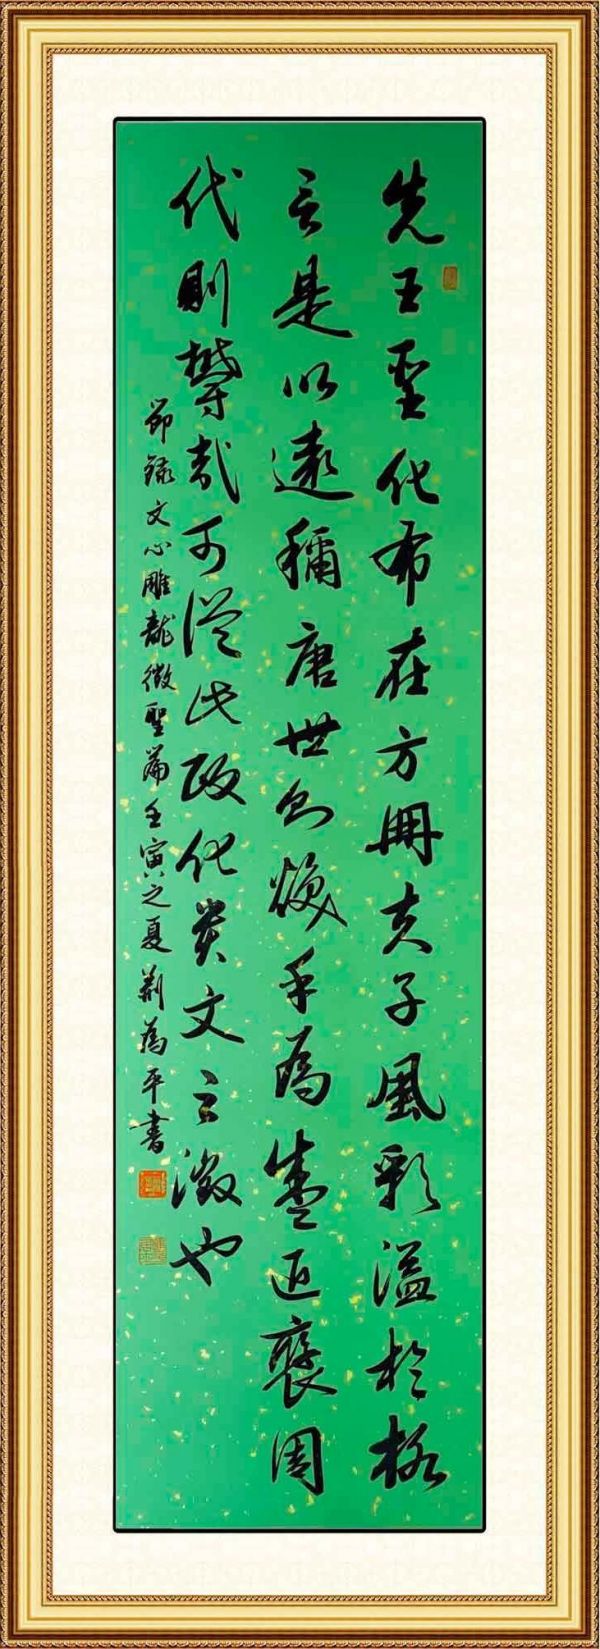 先王聖化布在方冊夫子風彩溢於格
言是以遠稱唐世則煥乎為盛近褒周
代則鬱哉可從此政化貴文之徵也
節錄文心雕龍徵聖篇壬寅之夏荆為平書